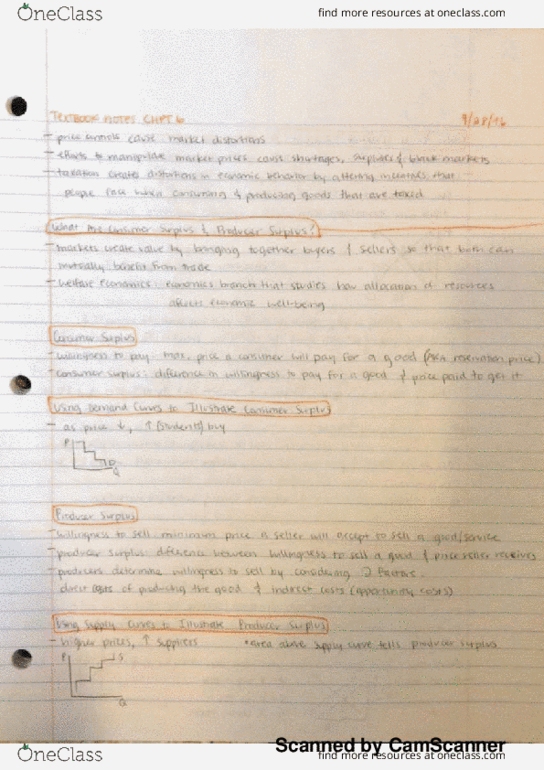 OneClass
find more resources at oneclass.com
TEXTBOOK NOTES CHPT 6
9/28/16
- price controls cause market distortions
- efforts to manipulate market prices cause shortages, surpluses & black markets
- taxation creates distortions in economic behavior by altering incentives that
people face when consuming & producing goods that are taxed
What Are Consumer Surplus & Producer Surplus?
- markets create value by bringing together buyers & sellers so that both can
mutually benefit from trade
- welfare economics: economics branch that studies how allocation of resources
affects economic well-being
Consumer Surplus
- willingness to pay: max. price a consumer will pay for a good (AKA reservation price)
- consumer surplus: difference in willingness to pay for a good & price paid to get it
Using Demand Curves to Illustrate Consumer Surplus
- as price ↓, ↑ (students) buy
P
D
Q
Producer Surplus
- willingness to sell: minimum price a seller will accept to sell a good/service
- producer surplus: difference between willingness to sell a good & price seller receives
- producers determine willingness to sell by considering 2 factors:
direct costs of producing the good & indirect costs (opportunity costs)
Using Supply Curves to Illustrate Producer Surplus
- higher prices, ↑ suppliers
*area above supply curve tells producer surplus
P
S
Q
Scanned by CamScanner
OneClass
find more resources at oneclass.com